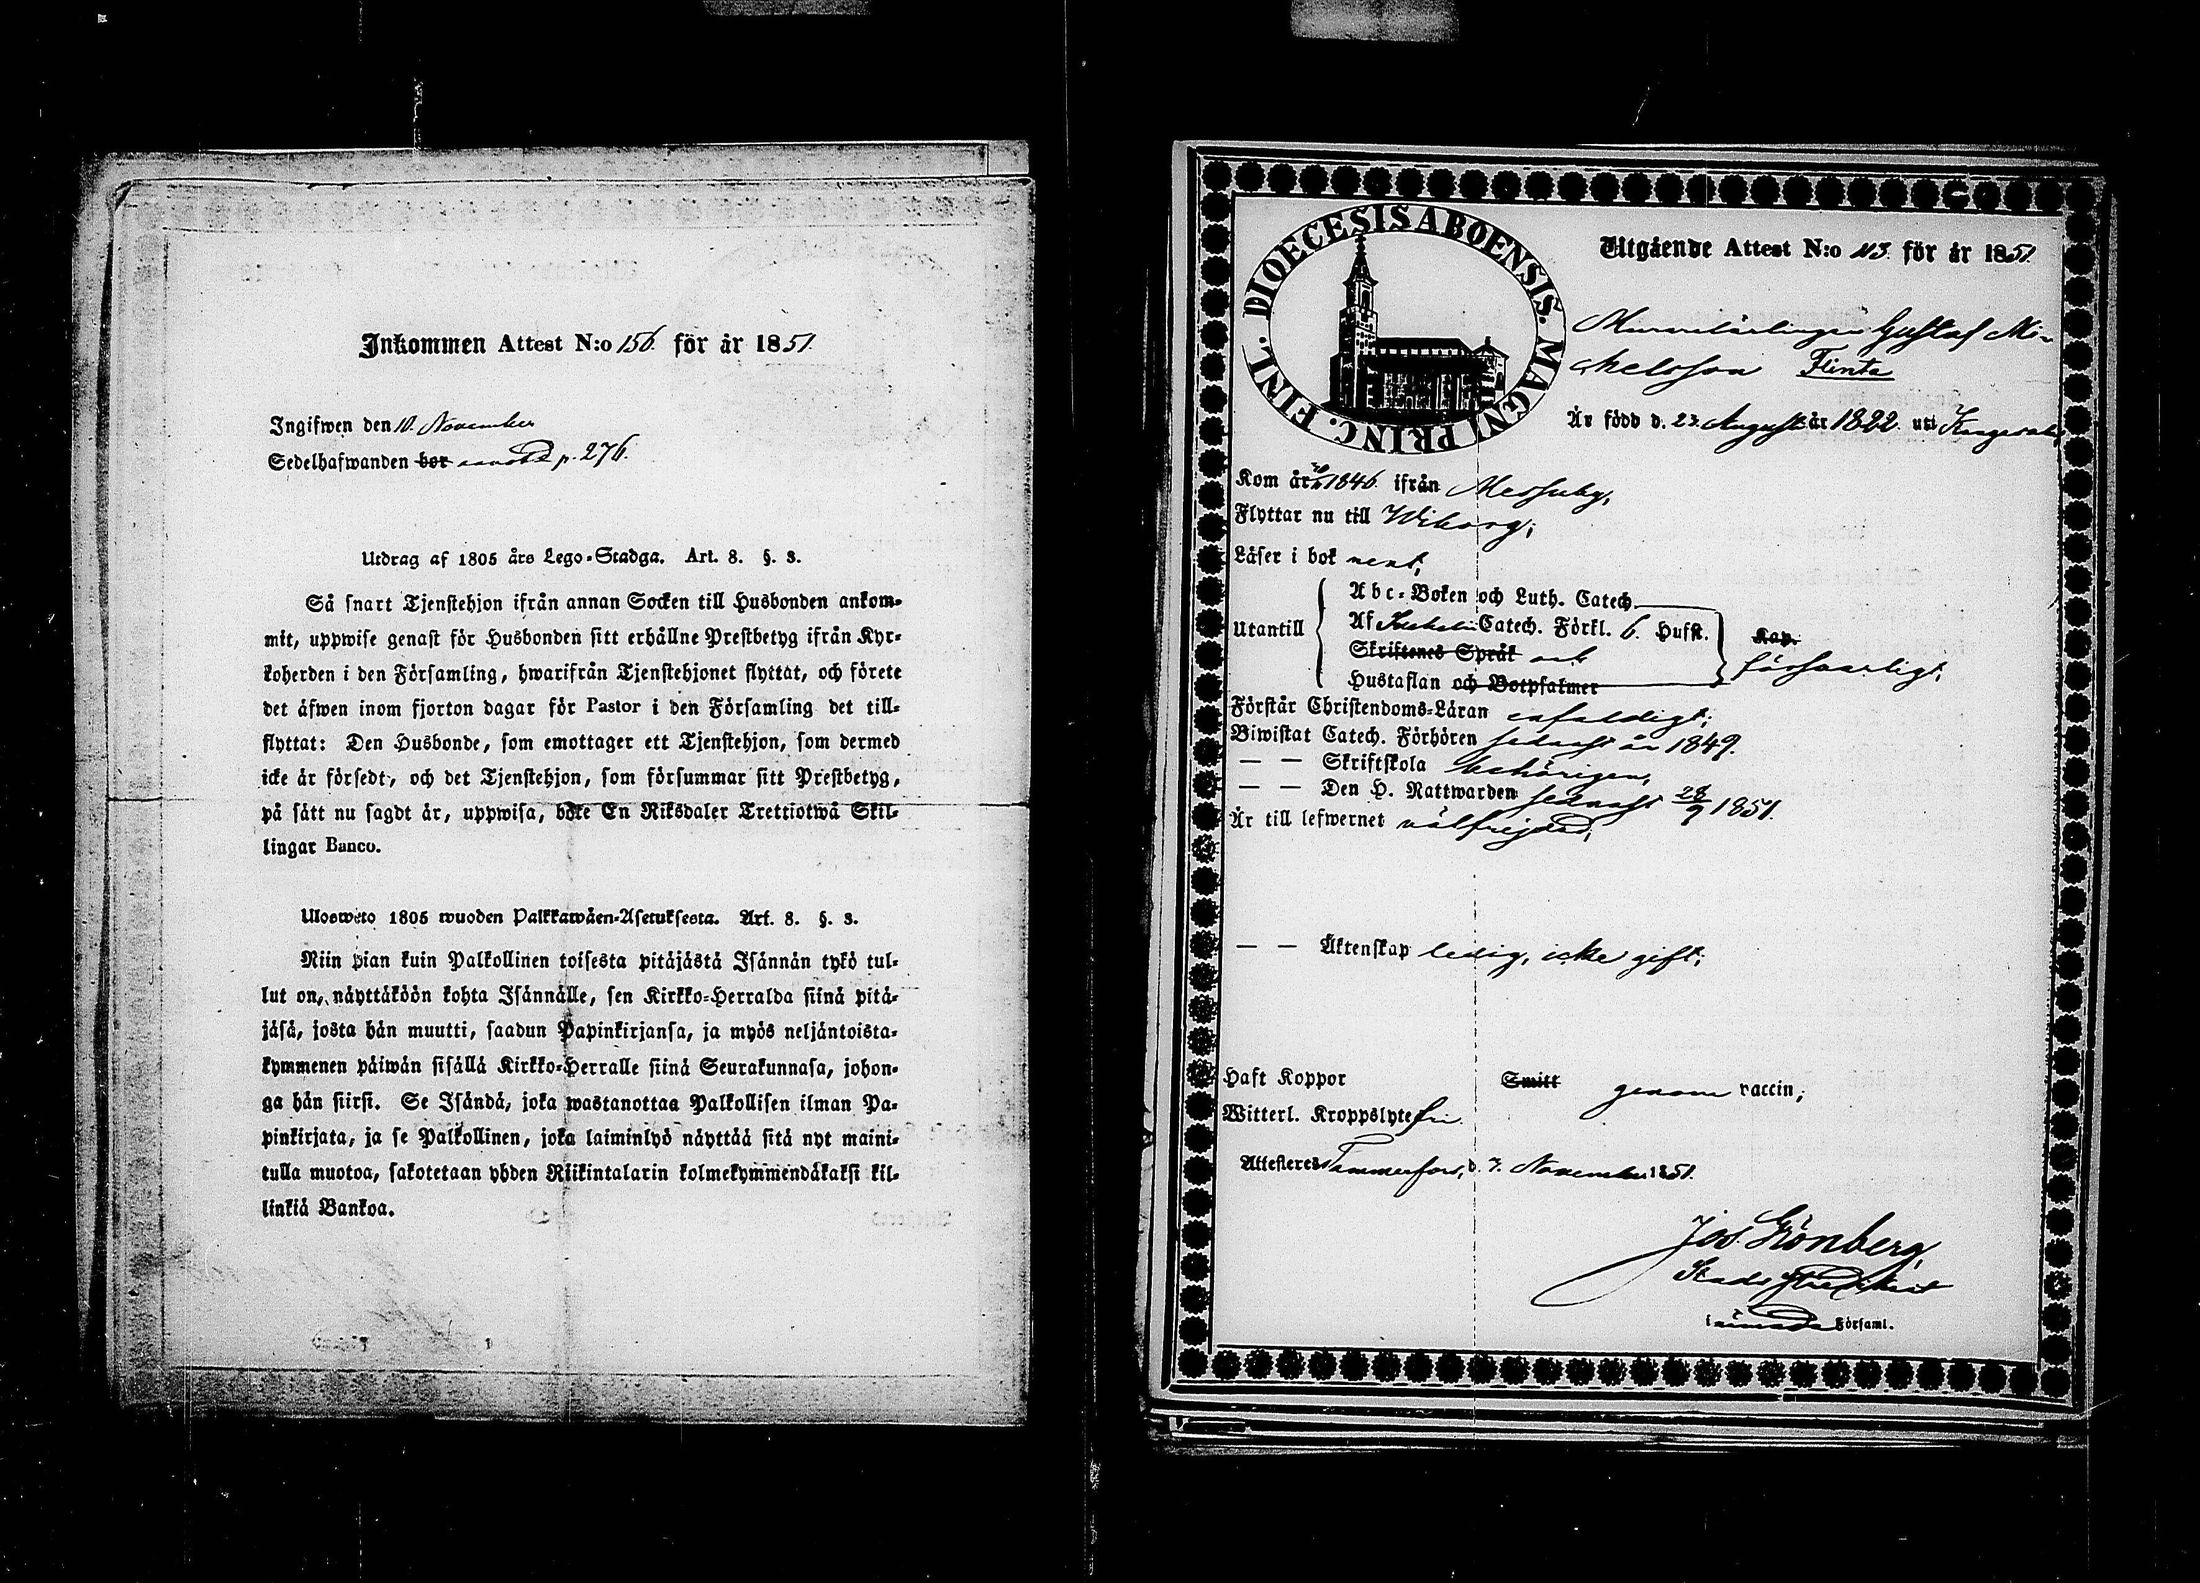 Inkommen Attest N:o 156. för år 1851.
Ingifwen den 10. November
Sedelhafwanden bor p. 276.
Utdrag af 1805 års Lego-Stadga. Art. 8. §. 3.
Så snart Tjenstehjon ifrån annan Socken till Husbonden ankom-
mit, uppwise genast för Husbonden sitt erhållne Prestbetyg ifrån Kyr-
koherden i den Församling, hwarifrån Tjenstehjonet flyttat, och förete
det äfwen inom fjorton dagar för Pastor i den Församling det till-
flyttat: Den Husbonde, som emottager ett Tjenstehjon, som dermed
icke är försedt, och det Tjenstehjon, som försummar sitt Prestbetyg,
på sätt nu sagdt är, uppwisa, böte En Riksdaler Trettiotwå Skil-
lingar Banco.
Ulosweto 1805 wuoden Palkkawäen-Asetuksesta. Art. 8. §. 3.
Niin pian kuin Palkollinen toisesta pitäjästä Isännän tykö tul-
lut on, näyttäköön kohta Isännälle, sen Kirkko-Herralda siinä pitä-
jäsä, josta hän muutti, saadun Papinkirjansa, ja myös neljäntoista-
kymmenen päiwän sisällä Kirkko-Herralle siinä Seurakunnasa, johon-
ga hän siirsi. Se Isändä, joka wastanottaa Palkollisen ilman Pa-
pinkirjata, ja se Palkollinen, joka laiminlyö näyttää sitä nyt maini-
tulla muotoa, sakotetaan yhden Riikintalarin kolmekymmendäkaksi kil-
linkiä Bankoa.
DIOECESIS ABOENSIS. MAGNI PRINC. FINL.
Utgående Attest N:o 113. för år 1851.
Murarelärlingen Gustaf Mi-
chelsson Flinta
Är född d. 23 August år 1822. uti Kangasala
Kom år 1846. ifrån Messuby,
Flyttar nu till Wiborg;
Läser i bok rent,
Utantill
Abc-Boken och Luth. Catech.
Af Catech. Förkl. 6. Hufst.
Skriftenes Språk och
Hustaflan och Botpsalmer
Kap.
försvarligt,
Förstår Christendoms-Läran enfaldigt;
Biwistat Catech. Förhören sednast år 1849.
— — Skriftskola behörigen,
— — Den H. Nattwarden sednast 28/9 1851.
Är till lefwernet välfrejdad,
— — Äktenskap ledig, icke gift;
Haft Koppor Smitt genom vaccin;
Witterl. Kroppslyte fri.
Attesteres Tammerfors, d. 7. November 1851.
Jos. Grönberg,
Stads
i Församl.